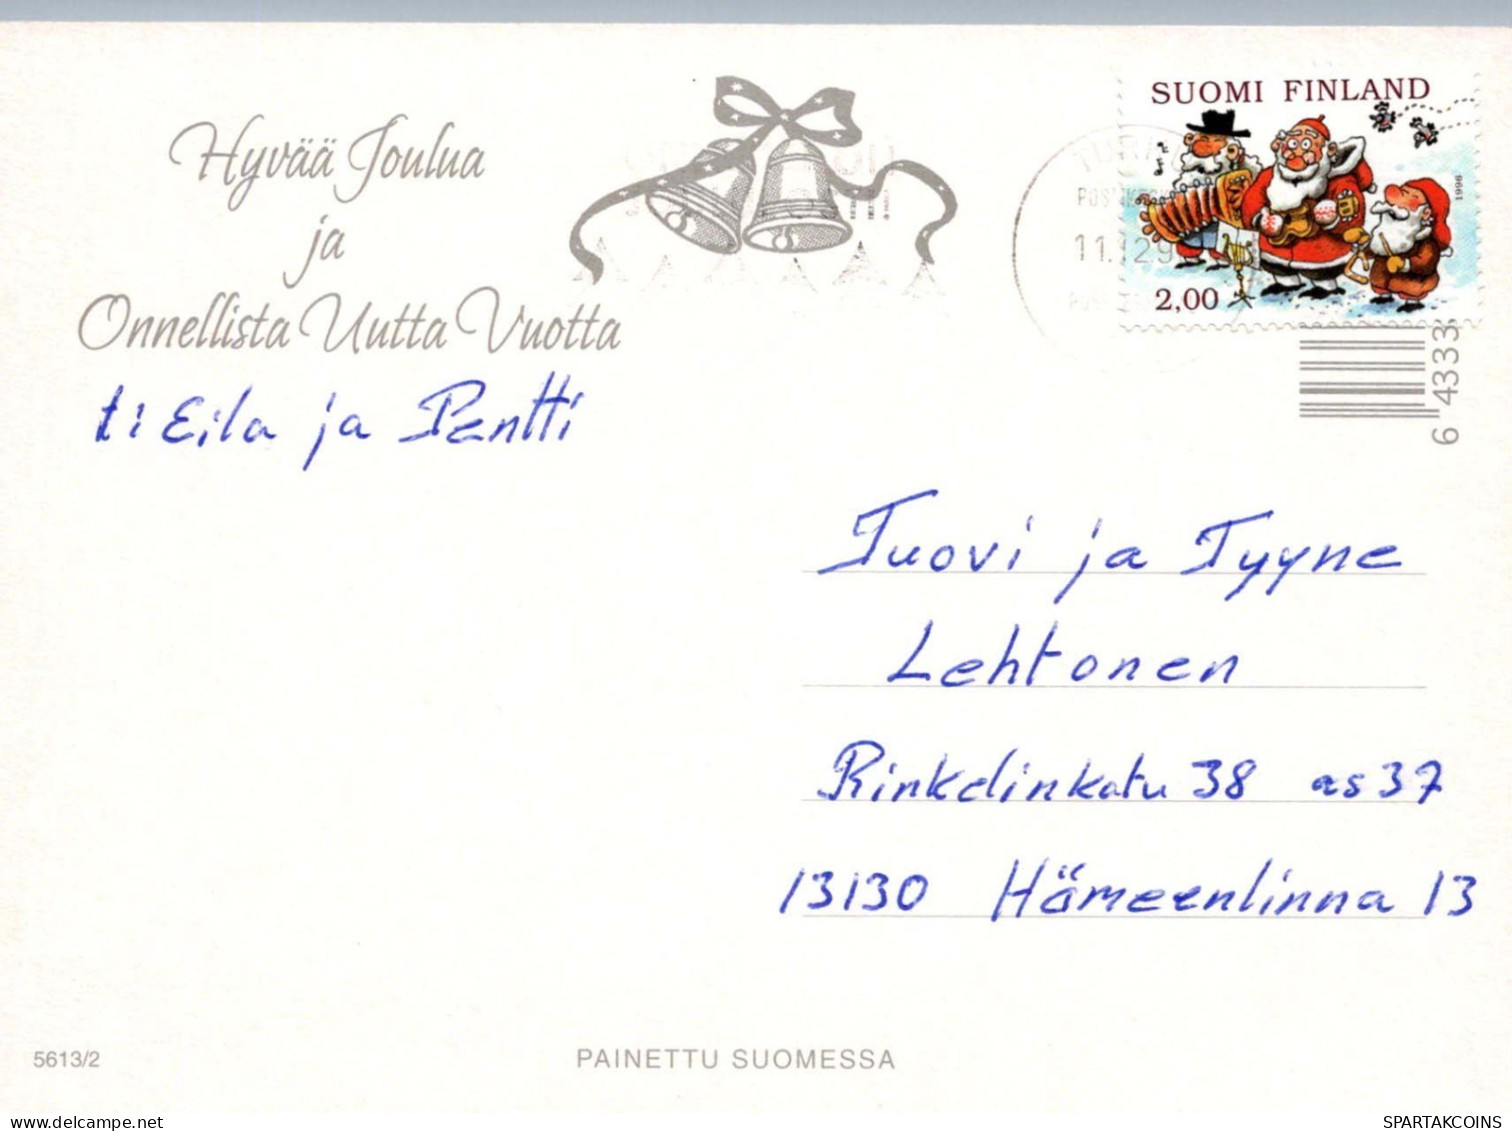 SUOMI FINLAND
1996
2,00
Hyvää Joulua
ja
Onnellista Uutta Vuotta
t: Eila ja Pentti
11.12.9
6 4333
Tuovi ja Tyyne
Lehtonen
Rinkelinkatu 38 as 37
13130 Hämeenlinna 13
5613/2
PAINETTU SUOMESSA
delcampe.net
SPARTAKCOINS